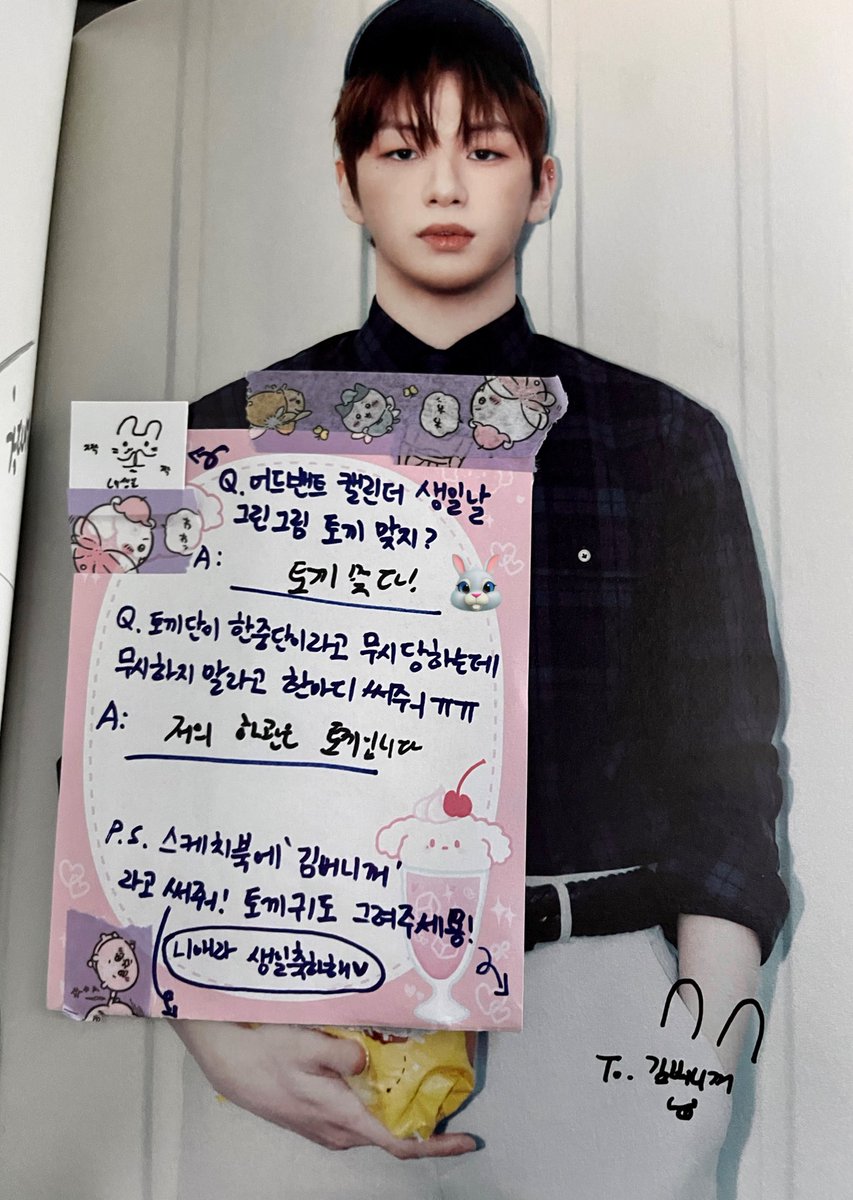 Q. 어드벤트 캘린더 생일날
그린그림 토끼 맞지?
A:
토끼 맞다!
Q. 토끼단이 한줌단이라고 무시당하는데
무시하지 말라고 한마디 써줘ㅠㅠ
A:
저의 하관은 토끼입니다
P.S. 스케치북에 '김버니꺼'
라고 써줘! 토끼귀도 그려주세용!
니애라 생일축하해♡
To. 김버니꺼
님